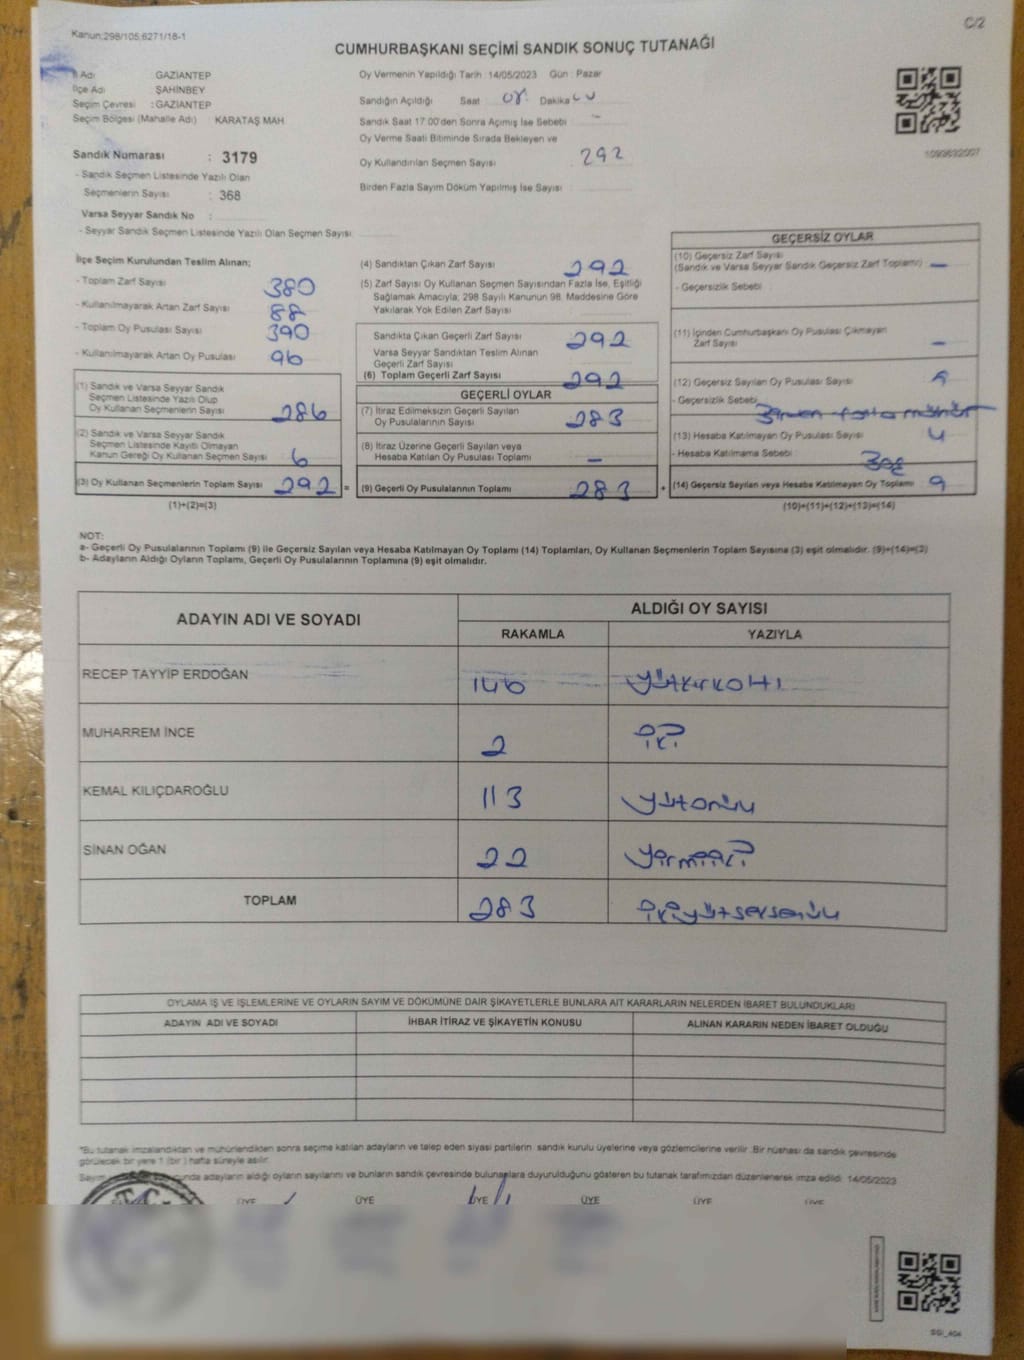 Kanun:298/105;6271/18-1
C/2
CUMHURBAŞKANI SEÇİMİ SANDIK SONUÇ TUTANAĞI
İl Adı GAZİANTEP
İlçe Adı ŞAHİNBEY
Seçim Çevresi : GAZİANTEP
Seçim Bölgesi (Mahalle Adı) KARATAŞ MAH
Sandık Numarası : 3179
- Sandık Seçmen Listesinde Yazılı Olan
Seçmenlerin Sayısı : 368
Varsa Seyyar Sandık No :
- Seyyar Sandık Seçmen Listesinde Yazılı Olan Seçmen Sayısı
Oy Vermenin Yapıldığı Tarih : 14/05/2023 Gün : Pazar
Sandığın Açıldığı Saat 08 Dakika
Sandık Saat 17:00'den Sonra Açımış İse Sebebi
Oy Verme Saati Bitiminde Sırada Bekleyen ve
Oy Kullandırılan Seçmen Sayısı 292
Birden Fazla Sayım Döküm Yapılmış İse Sayısı
1099632007
İlçe Seçim Kurulundan Teslim Alınan;
- Toplam Zarf Sayısı 380
- Kullanılmayarak Artan Zarf Sayısı 88
- Toplam Oy Pusulası Sayısı 390
- Kullanılmayarak Artan Oy Pusulası 96
(1) Sandık ve Varsa Seyyar Sandık
Seçmen Listesinde Yazılı Olup
Oy Kullanan Seçmenlerin Sayısı 286
(2) Sandık ve Varsa Seyyar Sandık
Seçmen Listesinde Kayıtlı Olmayan
Kanun Gereği Oy Kullanan Seçmen Sayısı 6
(3) Oy Kullanan Seçmenlerin Toplam Sayısı 292 =
(1)+(2)=(3)
(4) Sandıktan Çıkan Zarf Sayısı 292
(5) Zarf Sayısı Oy Kullanan Seçmen Sayısından Fazla İse, Eşitliği
Sağlamak Amacıyla; 298 Sayılı Kanunun 98. Maddesine Göre
Yakılarak Yok Edilen Zarf Sayısı
Sandıkta Çıkan Geçerli Zarf Sayısı 292
Varsa Seyyar Sandıktan Teslim Alınan
Geçerli Zarf Sayısı
(6) Toplam Geçerli Zarf Sayısı 292
GEÇERLİ OYLAR
(7) İtiraz Edilmeksizin Geçerli Sayılan
Oy Pusulalarının Sayısı 283
(8) İtiraz Üzerine Geçerli Sayılan veya
Hesaba Katılan Oy Pusulası Toplamı –
(9) Geçerli Oy Pusulalarının Toplamı 283 +
GEÇERSİZ OYLAR
(10) Geçersiz Zarf Sayısı
(Sandık ve Varsa Seyyar Sandık Geçersiz Zarf Toplamı) –
- Geçersizlik Sebebi
(11) İçinden Cumhurbaşkanı Oy Pusulası Çıkmayan
Zarf Sayısı –
(12) Geçersiz Sayılan Oy Pusulası Sayısı
- Geçersizlik Sebebi
(13) Hesaba Katılmayan Oy Pusulası Sayısı 4
- Hesaba Katılmama Sebebi
(14) Geçersiz Sayılan veya Hesaba Katılmayan Oy Toplamı 9
(10)+(11)+(12)+(13)=(14)
NOT:
a- Geçerli Oy Pusulalarının Toplamı (9) ile Geçersiz Sayılan veya Hesaba Katılmayan Oy Toplamı (14) Toplamları, Oy Kullanan Seçmenlerin Toplam Sayısına (3) eşit olmalıdır. (9)+(14)=(3)
b- Adayların Aldığı Oyların Toplamı, Geçerli Oy Pusulalarının Toplamına (9) eşit olmalıdır.
ADAYIN ADI VE SOYADI ALDIĞI OY SAYISI
RAKAMLA YAZIYLA
RECEP TAYYİP ERDOĞAN 146 yüzkırkaltı
MUHARREM İNCE 2 iki
KEMAL KILIÇDAROĞLU 113 yüzonüç
SİNAN OĞAN 22 yirmiiki
TOPLAM 283 ikiyüzseksenüç
OYLAMA İŞ VE İŞLEMLERİNE VE OYLARIN SAYIM VE DÖKÜMÜNE DAİR ŞİKAYETLERLE BUNLARA AİT KARARLARIN NELERDEN İBARET BULUNDUKLARI
ADAYIN ADI VE SOYADI İHBAR İTİRAZ VE ŞİKAYETİN KONUSU ALINAN KARARIN NEDEN İBARET OLDUĞU
*Bu tutanak imzalandıktan ve mühürlendikten sonra seçime katılan adayların ve talep eden siyasi partilerin sandık kurulu üyelerine veya gözlemcilerine verilir. Bir nüshası da sandık çevresinde
görülecek bir yere 1 (bir) hafta süreyle asılır.
Sayım sonucunda adayların aldığı oyların sayılarını ve bunların sandık çevresinde bulunanlara duyurulduğunu gösteren bu tutanak tarafımızdan düzenlenerek imza edildi. 14/05/2023
T.C.
ÜYE ÜYE ÜYE ÜYE ÜYE ÜYE